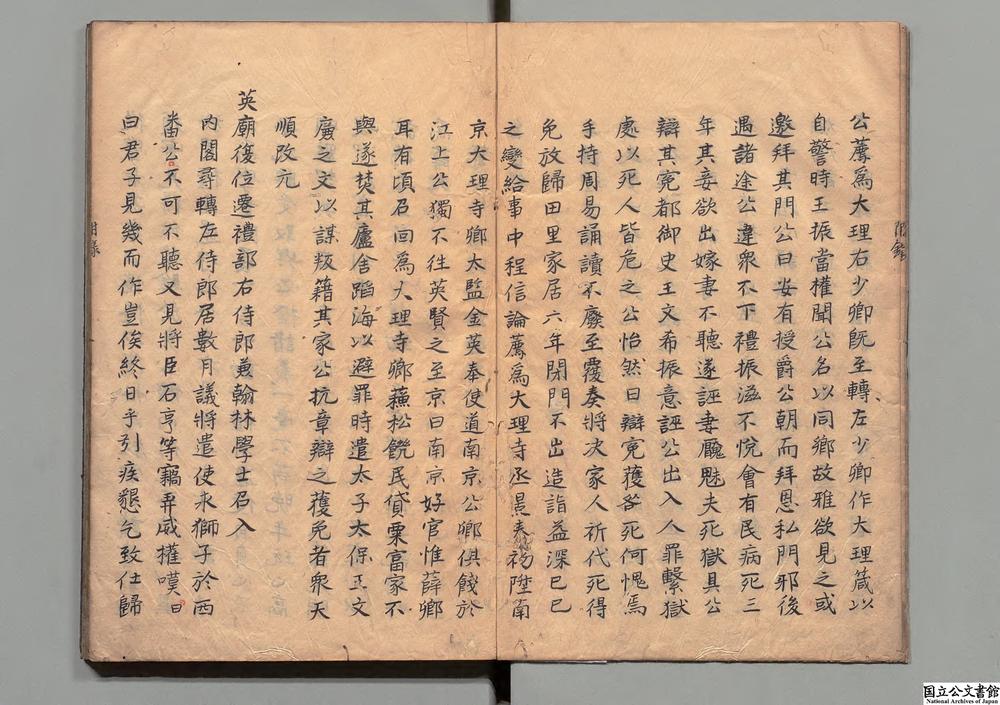 公薦為大理右少卿既至轉左少卿作大理箴以
自警時王振當權聞公名以同鄉故雅欲見之或
邀拜其門公曰安有授爵公朝而拜恩私門邪後
遇諸途公違衆不下禮振滋不悅會有民病死三
年其妾欲出嫁妻不聽遂誣妻魘魅夫死獄具公
辯其寃都御史王文希振意誣公出入人罪繫獄
處以死人皆危之公怡然曰辯寃獲咎死何愧焉
手持周易誦讀不廢至覆奏將决家人祈代死得
免放歸田里家居六年閉門不出造詣益深己巳
之變給事中程信論薦為大理寺丞景泰初陞南
京大理寺卿太監金英奉使道南京公卿俱餞於
江上公獨不往英賢之至京曰南京好官惟薛卿
耳有頃召回為大理寺卿蘇松饑民貸粟富家不
與遂焚其廬舍蹈海以避罪時遣太子太保王文
廣之文以謀叛籍其家公抗章辯之獲免者衆天
順改元
英廟復位遷禮部右侍郎兼翰林學士召入
內閣尋轉左侍郎居數月議將遣使求獅子於西
番公不可不聽又見將臣石亨等竊弄威權嘆曰
曰君子見幾而作豈俟終日乎引疾懇乞致仕歸
附錄
附錄
国立公文書館
National Archives of Japan